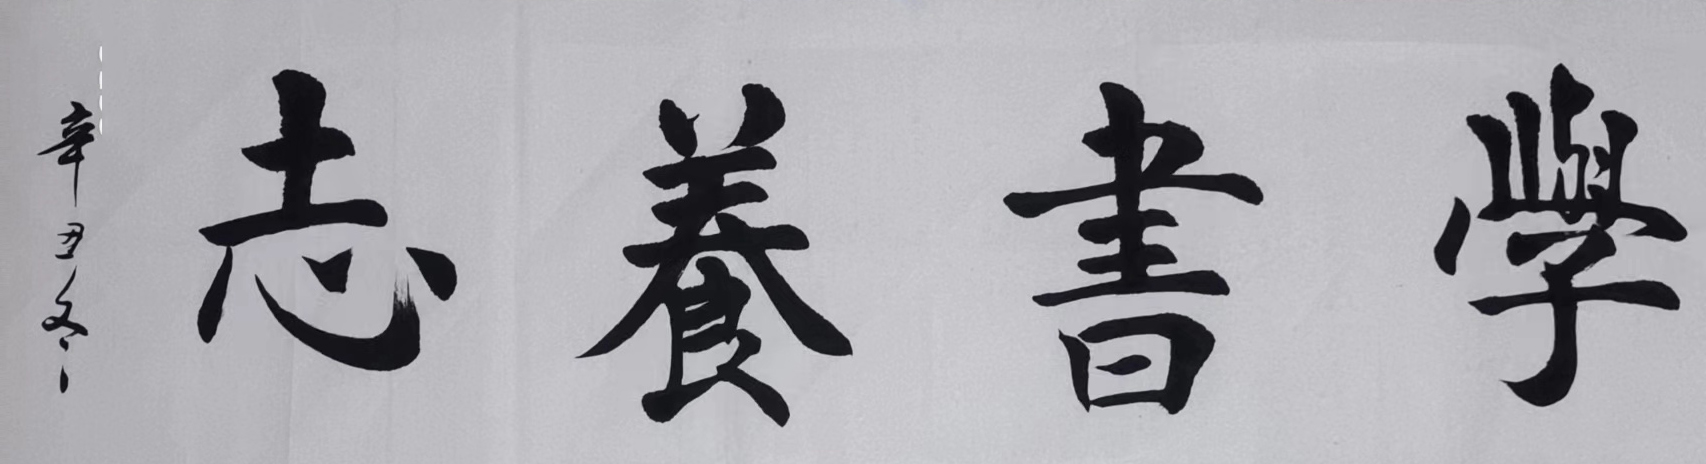 學書養志
辛丑冬